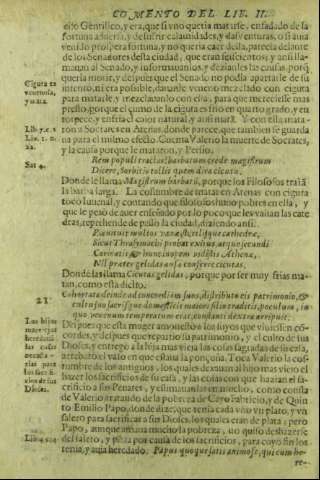 COMENTO DEL LIB. II.
esto Gentilico, y era, que si vno queria matarse, enfadado de la
fortuna aduersa, y de sufrir calamidades, y desuenturas, o si auia
tenido prospera fortuna, y no queria caer della, parecia delante
de los Senadores desta ciudad, que eran seiscientos, y
al Senado, y informauanlos, y dezianles las causas, porque
queria morir, y despues que el Senado no podia apartarle de su
intento, ni era posible, dauanle veneno mezclado con ciguta
para matarle, y mezclauanlo con ella, para que muriesse mas
presto, porque el çumo de la ciguta es frio en quarto grado, y en
torpece, y enfria el calor natural, y assi mata. Y con ella mata-
ron a Socrates en Atenas, donde parece, que tambien se guarda
ua para el mismo efeto. Cuenta Valerio la muerte de Socrates,
y la causa porque le mataron, y Persio.
Rem populi tractas? barbatum crede magistrum
Dicere, sorbitio tollit quem dira cicuta.
Donde le llama Magistrum barbatum, porque los Filosofos traiã
la barba larga. La costumbre de matar en Atenas con ciguta
toco Iuuenal, y contando que filosofos huuo pobres en ella, y
que le peso de auer enseñado por lo poco que leuauan las cate
dras, reprehende de passo la ciudad, diziendo assi.
Pœnituit multos vanæ, sterilisque cathedræ,
Sicut Thrasymachi probat exitus, atque secundi
Carinatis & hunc inopem vidistis Athenæ,
Nil præter gelidas ausæ conferre cicutas.
Donde las llama Cicutas gelidas, porque por ser muy frias ma-
tan, como esta dicho.
Cohortata deinde ad concordiam suos, distributo eis patrimonio, &
cultu suo sacrisque domesticis maiori filiæ traditis, poculum, in
quo venenum temperatum erat, constanti dextra arripuit.
Despues que esta muger amonestò a los suyos que viuiessen cõ-
cordes, y despues que repartio su patrimonio, y el culto de sus
Dioses, y entregò a la hija mas vieja las cosas sagradas de su casa,
arrebatò el vaso en que estaua la ponçoña. Toca Valerio la cos-
tumbre de los antiguos, los quales dexauan al hijo mas viejo el
hazer los sacrificios de su casa, y las cosas con que hazian el sa-
crificio a sus Penates, y estimauanlas en mucho, como consta
de Valerio tratando de la pobreza de Cayo Fabricio, y de Quin
to Emilio Papo, donde dize, que tenia cada vno vn plato, y vn
salero para sacrificar a sus Dioses, los quales eran de plata: pero
Papo, aunque amaua mucho la pobreza, no quiso deshazerse
del salero, y patera para de los sacrificios, para cuyo fin los
tenia, y auia heredado. Papus quoque satis animose, qui cum he-
re-
Ciguta es
venenosa,
y mata.
Sat. 4.
21
Las hijas
mayores
heredauã
las cosas
sagradas
para
los sacrifi
cios de sus
Dioses.